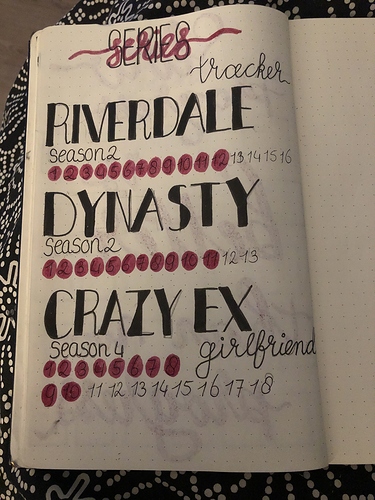 SERIES
series
tracker
RIVERDALE
season 2
1 2 3 4 5 6 7 8 9 10 11 12 13 14 15 16
DYNASTY
Season 2
1 2 3 4 5 6 7 8 9 10 11 12 13
CRAZY EX
Season 4 girlfriend
1 2 3 4 5 6 7 8
9 10 11 12 13 14 15 16 17 18